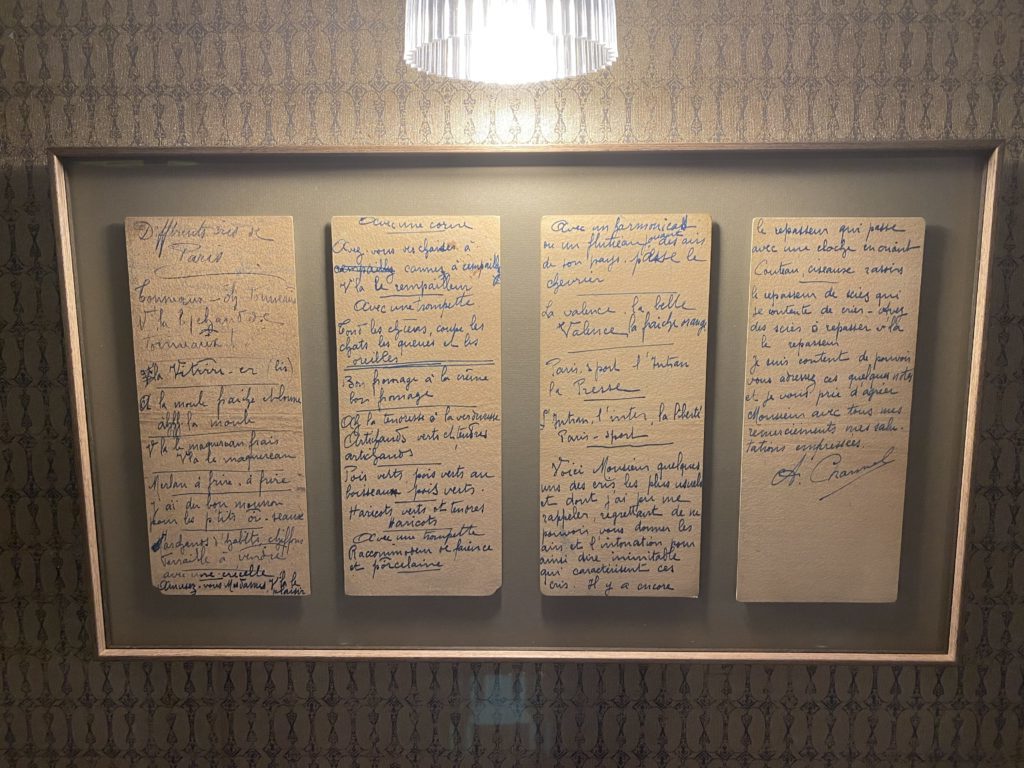 Différents cris de
Paris
Tonneaux
V'la l'
tonneaux !
V'la Vitri-er (bis)
A la moule fraiche et bonne
la moule
V'la le maquereau frais
V'la le maquereau
Merlan à frire, à frire
j'ai du bon mouron
pour les p'tits oi-seaux
d'habits, chiffons
ferraille à vendre
avec une crécelle
Amusez-vous Mesdames V'la le
plaisir
Avec une corne
Avez vous des chaises à
cannez, à rempailler
V'la le rempailleur
Avec une trompette
Tond les chiens, coupe les
chats les queues et les
oreilles
Bon fromage à la crème
bon fromage
A la tendresse à la verduresse
Artichauds verts et tendres
artichauds
Pois verts, pois verts au
boisseau pois verts.
Haricots verts et tendres
Haricots
Avec une trompette
Raccommodeur de faience
et porcelaine
Avec un harmonica
ou un fluteau jouant des airs
de son pays. passe le
chevrier
La valence, la belle
Valence, la fraiche orange
Paris, sport l'Intran
la Presse
L'Intran, l'inter, la liberté
Paris-sport
Voici Monsieur quelques
uns des cris les plus usuels
et dont j'ai pu me
rappeler, regrettant de ne
pouvoir vous donner les
airs et l'intonation pour
ainsi dire inimitable
qui caractérisent ces
cris. Il y a encore
le repasseur qui passe
avec une cloche en criant
Couteau ciseaux rasoirs
le repasseur de scies qui
se contente de crier - Avez
des scies à repasser v'la
le repasseur
Je suis content de pouvoir
vous adresser ces quelques notes
et je vous prie d'agréer
Monsieur avec tous mes
remerciements mes salu-
tations empressées.